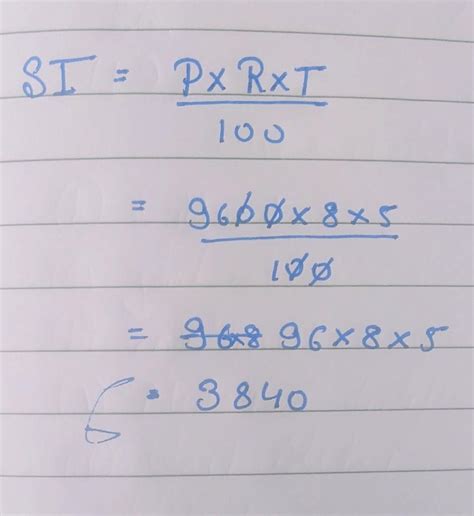 SI = P x R x T
100
= 9600 x 8 x 5
100
= 96x8 96 x 8 x 5
= 3840